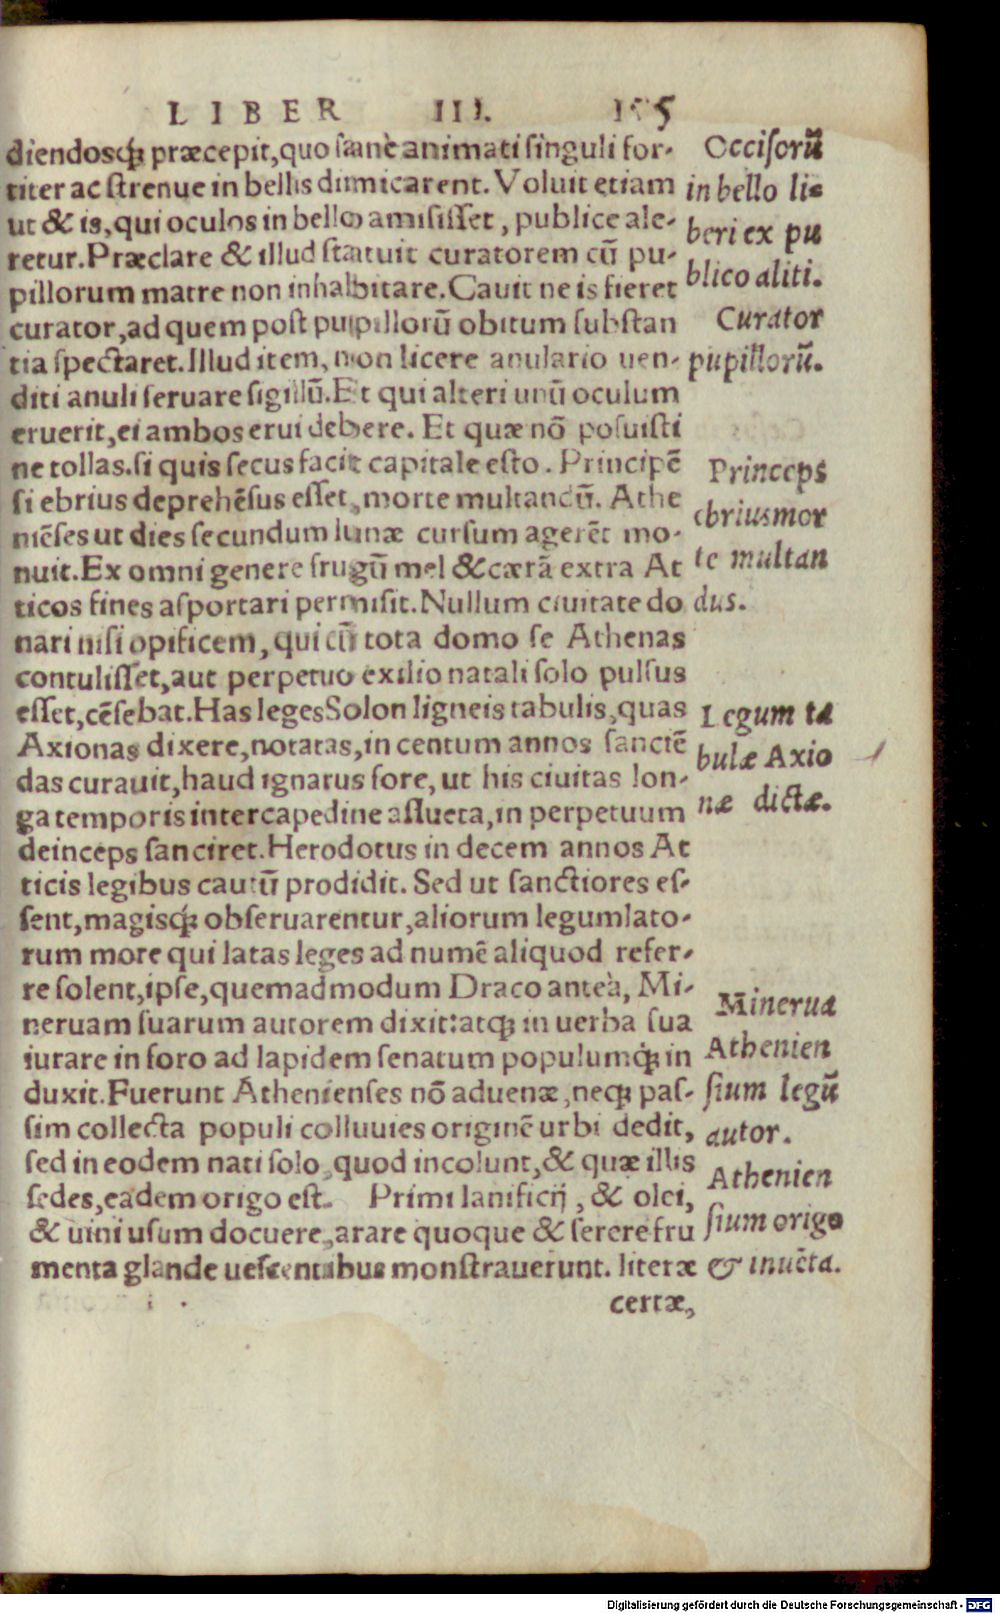 LIBER III. 155
diendosq; præcepit, quo sanè animati singuli for-
titer ac strenue in bellis dimicarent. Voluit etiam
ut & is, qui oculos in bello amisisset, publice ale-
retur. Præclare & illud statuit curatorem cū pu-
pillorum matre non inhabitare. Cauit ne is fieret
curator, ad quem post pupillorū obitum substan
tia spectaret. Illud item, non licere anulario uen-
diti anuli seruare sigillū. Et qui alteri unū oculum
eruerit, ei ambos erui debere. Et quæ nō posuisti
ne tollas. si quis secus facit capitale esto. Principē
si ebrius deprehēsus esset, morte multandū. Athe
niēses ut dies secundum lunæ cursum agerēt mo-
nuit. Ex omni genere frugū mel & cærā extra At
ticos fines asportari permisit. Nullum ciuitate do
nari nisi opificem, qui cū tota domo se Athenas
contulisset, aut perpetuo exilio natali solo pulsus
esset, cēsebat. Has leges Solon ligneis tabulis, quas
Axionas dixere, notatas, in centum annos sanctē
das curauit, haud ignarus fore, ut his ciuitas lon-
ga temporis intercapedine assueta, in perpetuum
deinceps sanciret. Herodotus in decem annos At
ticis legibus cautū prodidit. Sed ut sanctiores es-
sent, magisq; obseruarentur, aliorum legumlato-
rum more qui latas leges ad numē aliquod refer-
re solent, ipse, quemadmodum Draco anteà, Mi-
neruam suarum autorem dixit: atq; in uerba sua
iurare in foro ad lapidem senatum populumq; in
duxit. Fuerunt Athenienses nō aduenæ, neq; pas-
sim collecta populi colluuies originē urbi dedit,
sed in eodem nati solo, quod incolunt, & quæ illis
sedes, eadem origo est. Primi lanificij, & olei,
& uini usum docuere, arare quoque & serere fru
menta glande uescentibus monstrauerunt. literæ
certæ,
Occisorū
in bello li-
beri ex pu
blico aliti.
Curator
pupillorū.
Princeps
ebrius mor
te multan
dus.
Legum ta
bulæ Axio
næ dictæ.
Minerua
Athenien
sium legū
autor.
Athenien
sium origo
& inuēta.
Digitalisierung gefördert durch die Deutsche Forschungsgemeinschaft - DFG